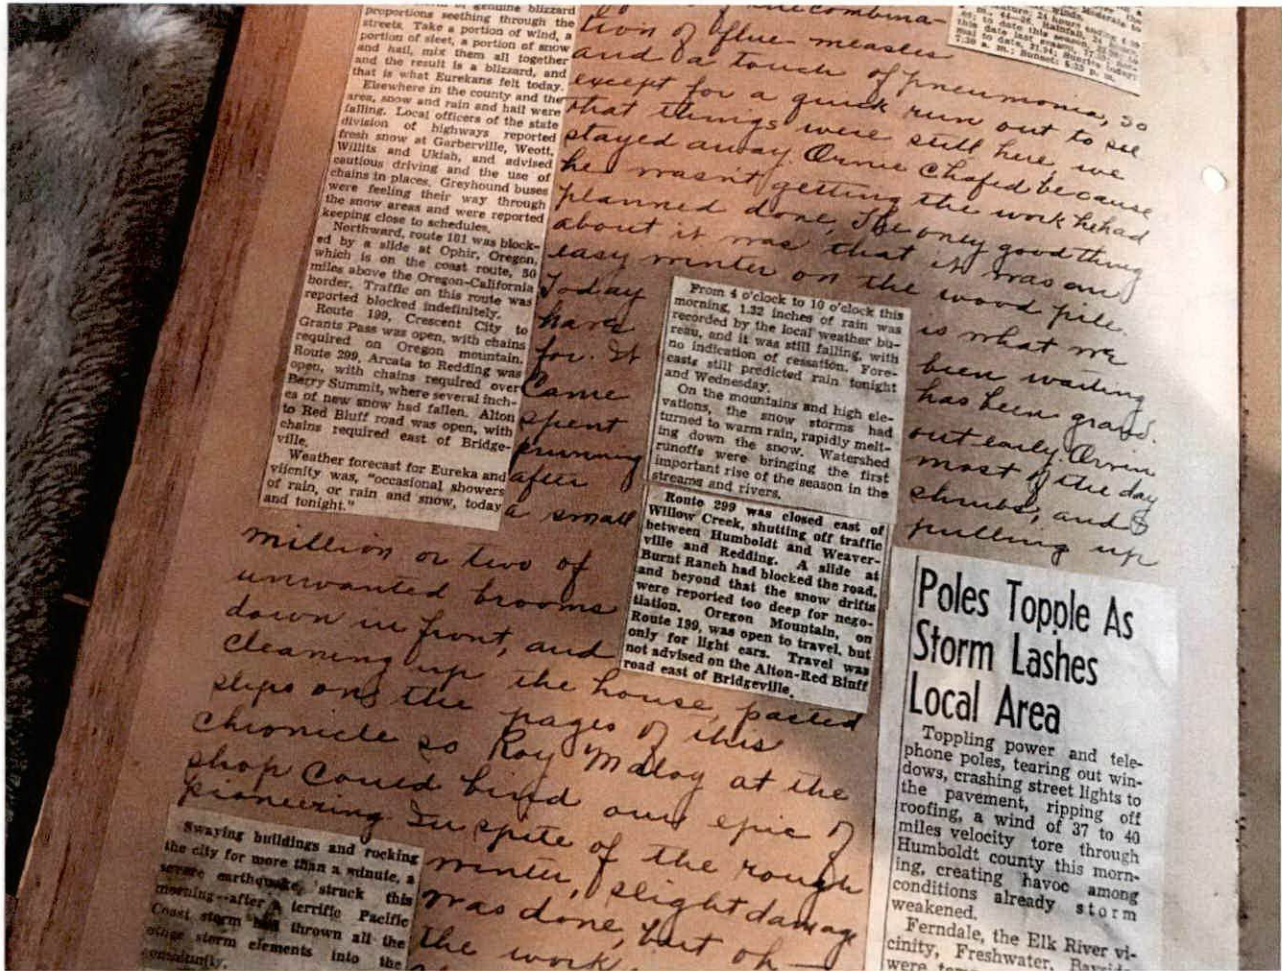 genuine blizzard
proportions seething through the
streets. Take a portion of wind, a
portion of sleet, a portion of snow
and hail, mix them all together
and the result is a blizzard, and
that is what Eurekans felt today.
Elsewhere in the county and the
area, snow and rain and hail were
falling. Local officers of the state
division of highways reported
fresh snow at Garberville, Weott,
Willits and Ukiah, and advised
cautious driving and the use of
chains in places. Greyhound buses
were feeling their way through
the snow areas and were reported
keeping close to schedules.
Northward, route 101 was block-
ed by a slide at Ophir, Oregon,
which is on the coast route, 30
miles above the Oregon-California
border. Traffic on this route was
reported blocked indefinitely.
Route 199, Crescent City to
Grants Pass was open, with chains
required on Oregon mountain.
Route 299, Arcata to Redding was
open, with chains required over
Berry Summit, where several inch-
es of new snow had fallen. Alton
to Red Bluff road was open, with
chains required east of Bridge-
ville.
Weather forecast for Eureka and
viicnity was, "occasional showers
of rain, or rain and snow, today
and tonight."
combina-
tion of flue measles
and a touch of pneumonia, so
except for a quick run out to see
that things were still here, we
stayed away. Orvie chafed because
he wasn't getting the work he had
planned done, The only good thing
about it was that it was an
easy winter on the wood pile.
Today is what we
have been waiting
for. It has been grand.
Came out early. Orvin
spent most of the day
prunning shrubs, and I
after pulling up
a small
million or two of
unwanted brooms
down in front, and
cleaning up the house, pasted
slips on the pages of this
chronicle so Roy Maloy at the
shop could bind our epic of
pioneering. In spite of the rough
winter, slight damage
was done, but oh
the work
From 4 o'clock to 10 o'clock this
morning, 1.32 inches of rain was
recorded by the local weather bu-
reau, and it was still falling, with
no indication of cessation. Fore-
casts still predicted rain tonight
and Wednesday.
On the mountains and high ele-
vations, the snow storms had
turned to warm rain, rapidly melt-
ing down the snow. Watershed
runoffs were bringing the first
important rise of the season in the
streams and rivers.
Route 299 was closed east of
Willow Creek, shutting off traffic
between Humboldt and Weaver-
ville and Redding. A slide at
Burnt Ranch had blocked the road,
and beyond that the snow drifts
were reported too deep for nego-
tiation. Oregon Mountain, on
Route 199, was open to travel, but
only for light cars. Travel was
not advised on the Alton-Red Bluff
road east of Bridgeville.
Poles Topple As
Storm Lashes
Local Area
Toppling power and tele-
phone poles, tearing out win-
dows, crashing street lights to
the pavement, ripping off
roofing, a wind of 37 to 40
miles velocity tore through
Humboldt county this morn-
ing, creating havoc among
conditions already storm
weakened.
Ferndale, the Elk River vi-
cinity, Freshwater,
were
Swaying buildings and rocking
the city for more than a minute, a
severe earthquake struck this
morning--after a terrific Pacific
Coast storm had thrown all the
other storm elements into the
community.
to date this season,
date last season,
mal to date, 21.94; Sunrise today:
7:20 a. m.; Sunset: 5:23 p. m.